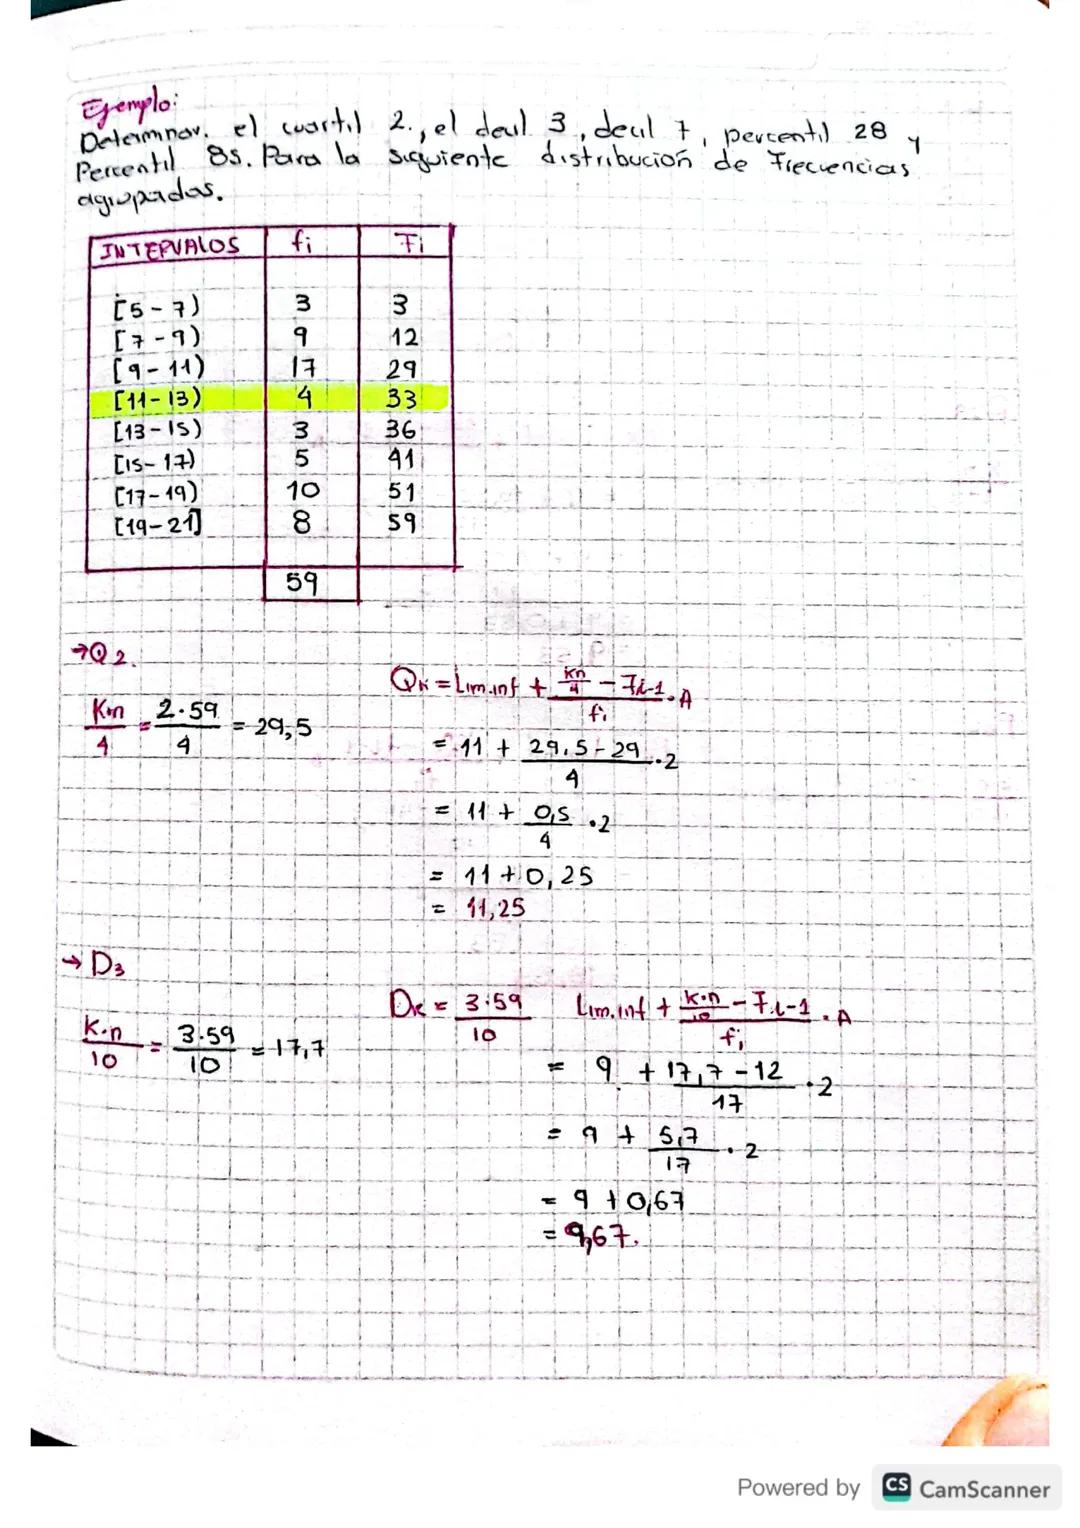 Ejemplo:
Determinar. el cuartil 2., el decil 3, decil 7, percentil 28 y
Percentil 85. Para la siguiente distribución de Frecuencias
agrupadas.
INTERVALOS fi Fi
[5-7) 3 3
[7-9) 9 12
[9-11) 17 29
[11-13) 4 33
[13-15) 3 36
[15-17) 5 41
[17-19) 10 51
[19-21] 8 59
59
→Q2.
K·n/4 = 2·59/4 = 29,5
QK = Lim.inf + (kn/4 - Fi-1)/fi · A
= 11 + (29.5-29)/4 ·2
= 11 + 0,5/4 ·2
= 11 + 0,25
= 11,25
→ D3
K·n/10 = 3·59/10 = 17,7
DK = 3·59/10 Lim.inf + (k·n/10 - Fi-1)/fi · A
= 9 + (17,7-12)/17 ·2
= 9 + 5,7/17 · 2
= 9 + 0,67
= 9,67.
Powered by CS CamScanner